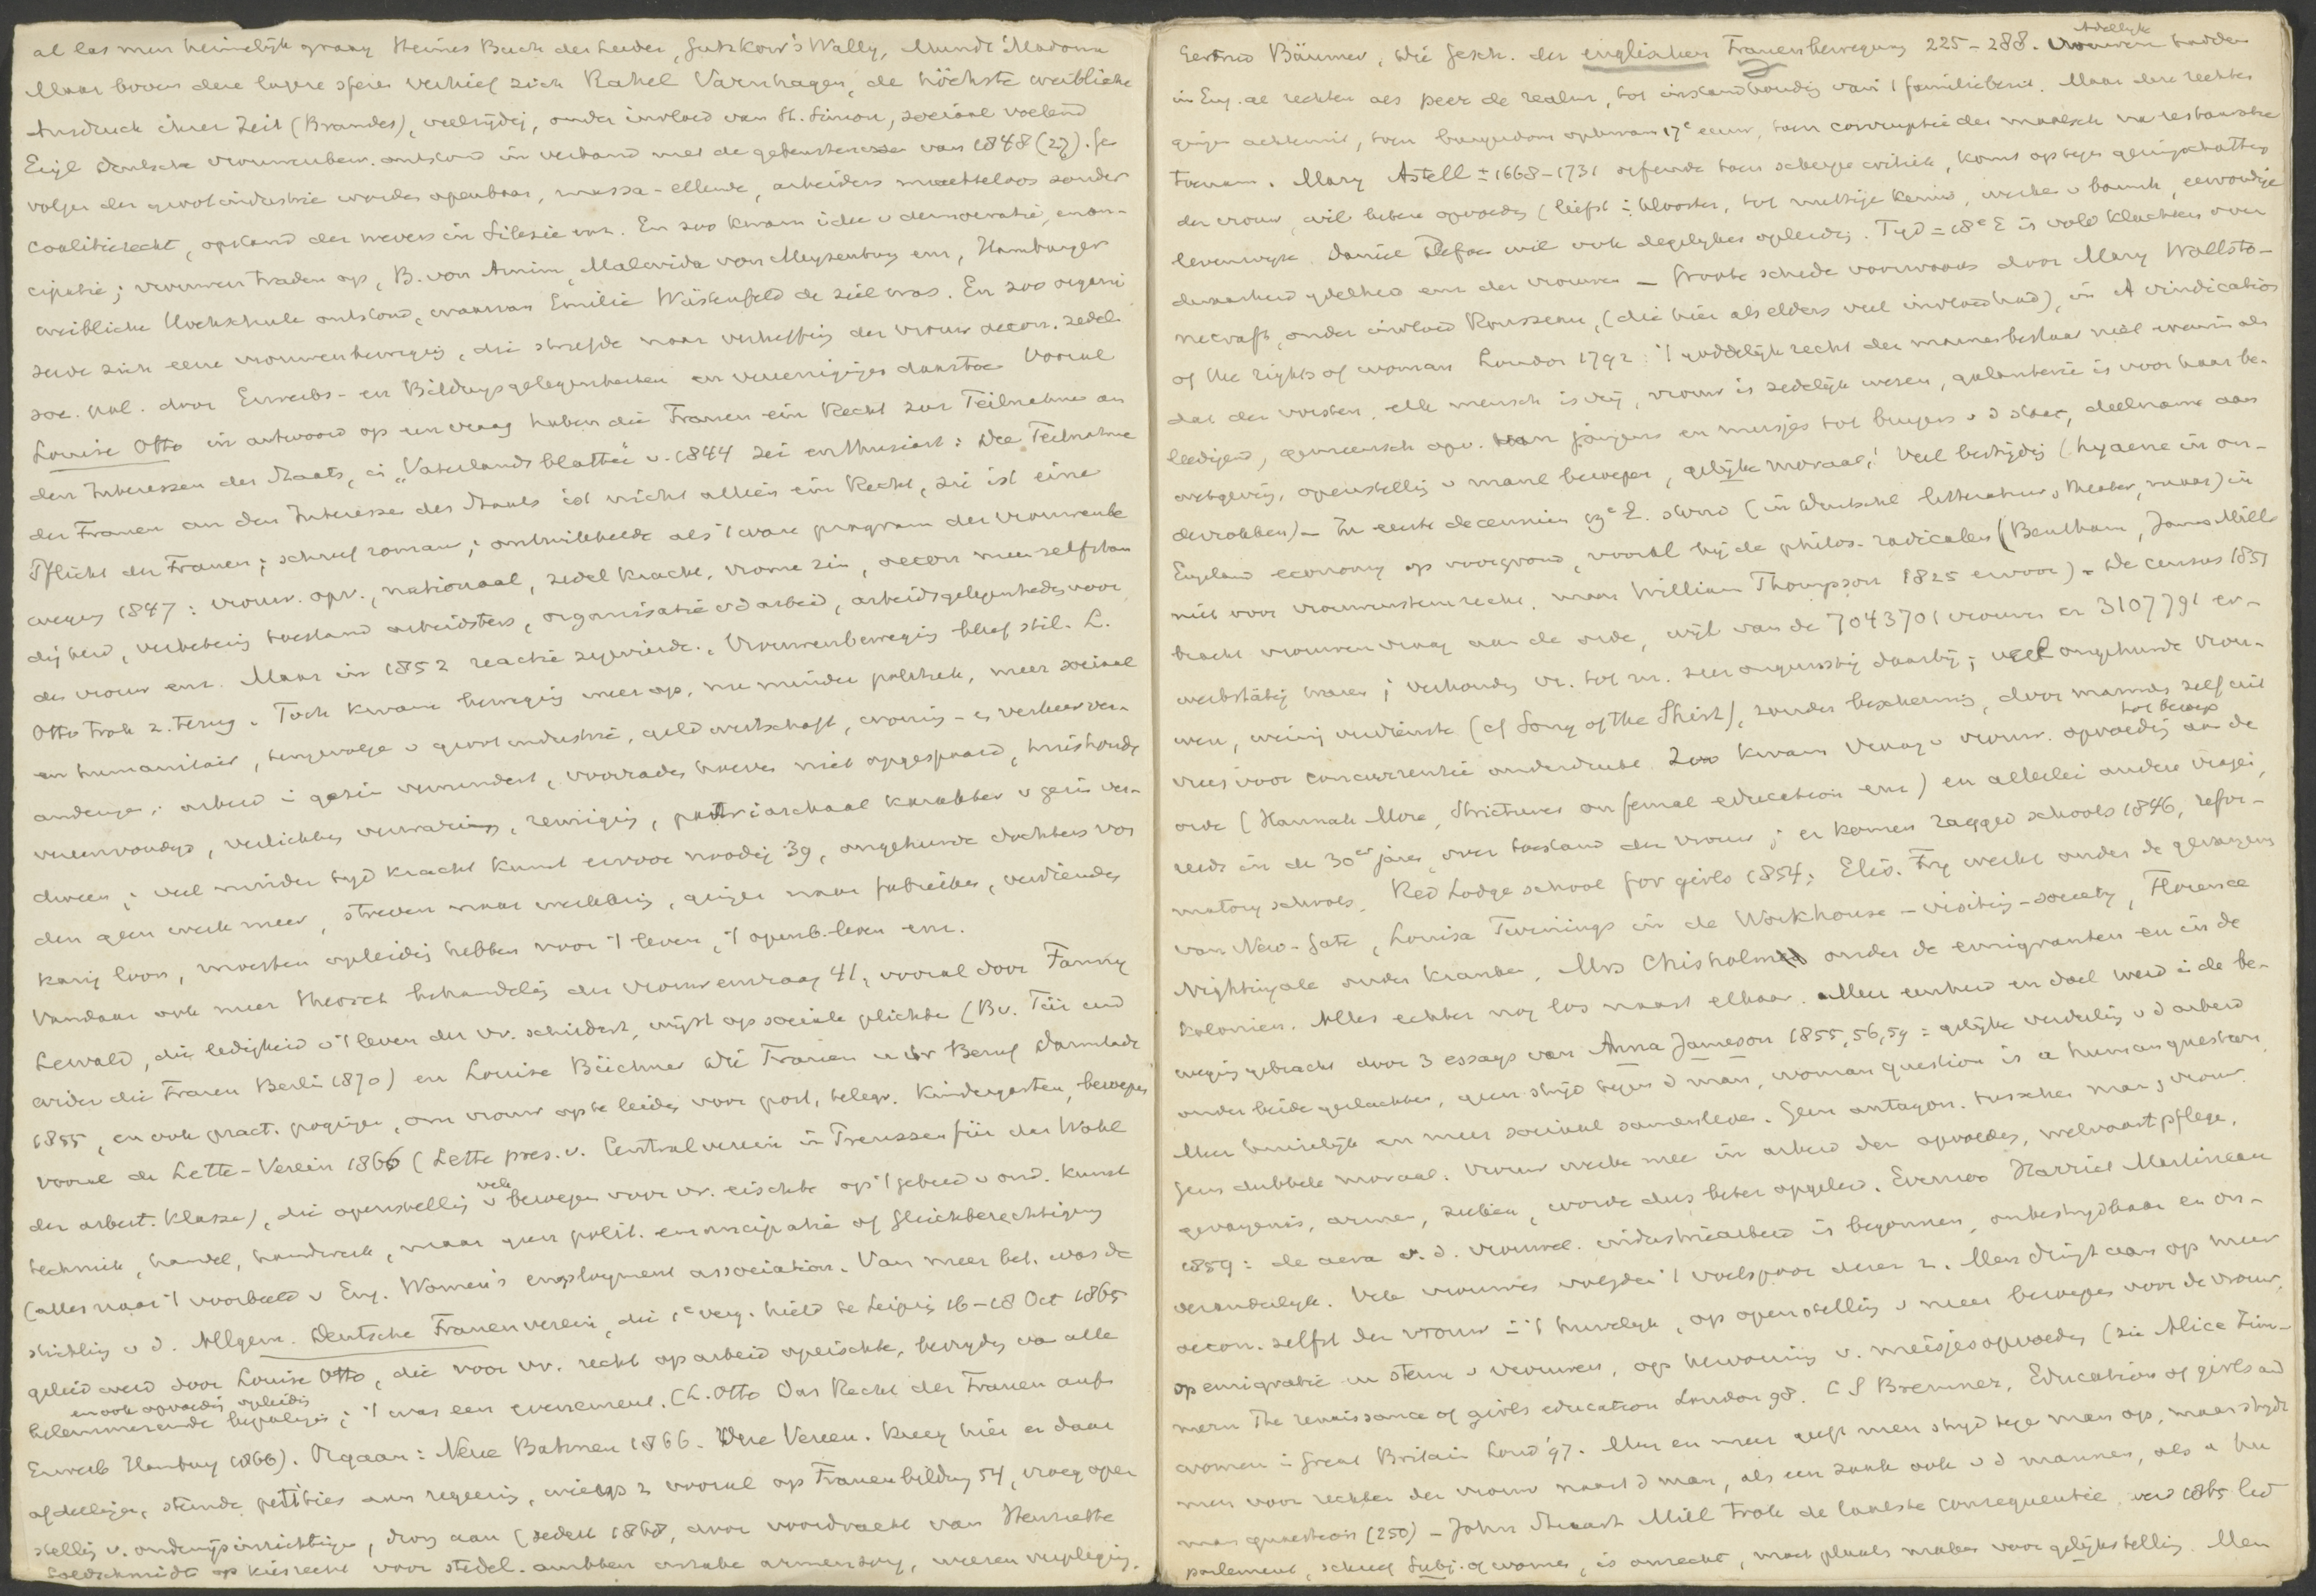 al las men heimelijk graag Heines Buch der Lieder, Gutzkow's Wally, Mundt Madonna
Maar boven deze lagere sferen verhief zich Rahel Varnhagen, de höchste weibliche
Ausdruck ihrer Zeit (Brandes), veelzijdig, onder invloed van St. Simon, sociaal voelend
Eigl Deutsche vrouwenbew. ontstond in verband met de gebeurtenissen van 1848 (27). Ge
volgen der grootindustrie werden openbaar, massa-ellende, arbeiders machteloos zonder
coalitierecht, opstand der wevers in Silezie enz. En zoo kwam idee v democratie, eman-
cipatie; vrouwen traden op, B. von Arnim, Malvida von Meysenbug enz, Hamburger
weibliche Hochschule ontstond, waarvan Emilie Wüstenfeld de ziel was. En zoo organi
seerde zich eene vrouwenbeweging, die streefde naar verheffing der vrouw oecon. zedel.
soc. pol. door Erwerbs- en Bildungsgelegenheiten en vereenigingen daartoe. Vooral
Louise Otto in antwoord op een vraag haben die Frauen ein Recht zur Teilnahme an
den Interessen des Staats, in "Vaterlandsblätter" v. 1844 zei enthusiast: Die Teilnahme
der Frauen an den Interessen des Staats ist nicht allein ein Recht, sie ist eine
Pflicht der Frauen; schreef romans; ontwikkelde als 't ware program der vrouwenbe
weging 1847: vrouw. opv., nationaal, zedel kracht, vrome zin, oecon meer zelfstan
digheid, verbetering toestand arbeidsters, organisatie vd arbeid, arbeidsgelegenheden voor
de vrouw enz. Maar in 1852 reactie zegevierde. Vrouwenbeweging bleef stil. L.
Otto trok z. terug. Toch kwam beweging weer op, nu minder politiek, meer sociaal
en humanitair, tengevolge v grootindustrie, geldwirtschaft, woning- en verkeersver-
anderingen; arbeid in gezin verminderd, voorraden hoeven niet opgespaard, huishoudg
vereenvoudigd, verlichting verwarming, reiniging, patriarchaal karakter v gezin ver-
dween; veel minder tijd kracht kunst ervoor noodig 39, ongehuwde dochters von
den geen werk meer, streven naar werkkring, gingen naar fabrieken, verdienden
karig loon, moesten opleiding hebben voor 't leven, 't openb. leven enz.
Vandaar ook meer theoret behandeling der vrouwenvraag 41, vooral door Fanny
Lewald, die ledigheid v 't leven der vr. schildert, wijst op sociale plichten (Bv. Für und
wider die Frauen Berlin 1870) en Louise Büchner Die Frauen u ihr Beruf Darmstadt
1855, en ook pract. pogingen, om vrouw op te leiden voor post, telegr. Kindergarten, beroepen
vooral de Lette-Verein 1866 (Lette pres. v. Centralverein in Preussen für das Wohl
der arbeit. Klasse), die openstelling v vele beroepen voor vr. eischte op 't gebied v ond. kunst
techniek, handel, handwerk, maar geen polit. emancipatie of Gleichberechtigung
(alles naar 't voorbeeld v Eng. Women's employment association. Van meer bet. was de
stichting v d. Allgem. Deutsche Frauenverein, die 1e verg. hield te Leipzig 16-18 Oct 1865
geleid werd door Louise Otto, die voor vr. recht op arbeid opeischte, bevrijding van alle
en ook opvoeding opleiding
belemmerende bepalingen; 't was een evenement. (L. Otto Das Recht der Frauen aufs
Erwerb Hamburg 1866). Orgaan: Neue Bahnen 1866. Deze Vereen. kreeg hier en daar
afdeelingen, stuurde petities aan regeering, wierp z vooral op Frauenbildung 54, vroeg open
stelling v. onderwijsinrichtingen, drong aan (sedert 1868, door voordracht van Henriette
Goldschmidt op kiesrecht voor stedel. ambten inzake armenzorg, weezenverpleging.
Gertrud Bäumer, Die Gesch. der englischen Frauenbewegung 225-288. Adellijk vrouwen hadden
in Eng. al rechten als peer de realm, tot instandhouding van 't familiebezit. Maar deze rechten
gingen achteruit, toen burgerdom opkwam 17e eeuw, toen corruptie der maatsch na restauratie
toenam. Mary Astell ± 1668-1731 oefende toen scherpe critiek, komt op tegen geringschatting
der vrouw, wil betere opvoeding (liefst in klooster, tot nuttige kennis, werken v barmh, eenvoudige
levenswijze. Daniel Defoe wil ook degelijker opleiding. Tijd = 18e E is vold klachten over
dwaasheid ijdelheid enz der vrouwen - Groote schrede voorwaarts door Mary Wollsto-
necraft, onder invloed Rousseau, (die hier als elders veel invloed had), in A vindication
of the rights of woman London 1792: 't goddelijk recht der mannen bestaat niet evenmin als
dat der vorsten, elk mensch is vrij, vrouw is zedelijk wezen, galanterie is voor haar be-
leedigend, gemeensch opv. van jongens en meisjes tot burgers v d staat, deelname aan
wetgeving, openstelling v manl beroepen, gelijke moraal! Veel bestrijding (hyaene in on-
derrokken) - In eerste decennien 19e E. stond (in Deutschl litteratuur, theater, maar) in
Engeland economy op voorgrond, vooral bij de philos. radicalen (Bentham, James Mill
niet voor vrouwenstemrecht, maar William Thompson 1825 ervoor). De census 1851
bracht vrouwenvraag aan de orde, wijl van de 7043701 vrouwen er 3107791 er-
werbstätig waren; verhouding vr. tot m. zeer ongunstig daarbij; veel ongehuwde vrou-
wen, weinig verdienste (cf Song of the Shirt), zonder bescherming, door mannen zelf uit
vrees voor concurrentie onderdrukt. Zoo kwam vraag v vrouw. opvoeding tot beroep aan de
orde (Hannah More, Strictures on femal education enz) en allerlei andere vragen,
reeds in de 30er jaren, over toestand der vrouw; er komen ragged schools 1846, refor-
matory schools, Red Lodge school for girls 1854; Elis. Fry werkt onder de gevangenen
van New-Gate, Louisa Twinings in de Workhouse-visiting-society, Florence
Nightingale onder kranken, Mrs Chisholm onder de emigranten en in de
kolonien. Alles echter nog los naast elkaar. Meer eenheid en doel werd in de be-
weging gebracht door 3 essays van Anna Jameson 1855, 56, 59 = gelijke verdeling v d arbeid
onder beide geslachten, geen strijd tegen d man, woman question is a human question
Meer huiselijk en meer sociaal samenleven. Geen antagon. tusschen man en vrouw.
Geen dubbele moraal. Vrouw werke mee in arbeid der opvoeding, welvaartpflege,
gevangenis, armen, zieken, worde dus beter opgeleid. Evenzoo Harriet Martineau
1859: de aera v. d. vrouwel. industriearbeid is begonnen, onbestrijdbaar en on-
veranderlijk. Vele vrouwen volgden 't voetspoor dezer 2. Men dringt aan op meer
oecon. zelfst der vrouw in 't huwelijk, op openstelling v meer beroepen voor de vrouw,
op emigratie en steun v vrouwen, op hervorming v. meisjesopvoeding (zie Alice Zim-
mern The renaissance of girls education London 98. C S Bremner, Education of girls and
women in Great Britain Lond '97. Meer en meer geeft men strijd tege man op, maar strijdt
men voor rechten der vrouw naast d man, als een zaak ook v d mannen, als a hu
man question (250) - John Stuart Mill trok de laatste consequentie, werd 1865 lid
parlement, schreef Subj. of women, is onrecht, moet plaats maken voor gelijkstelling. Men